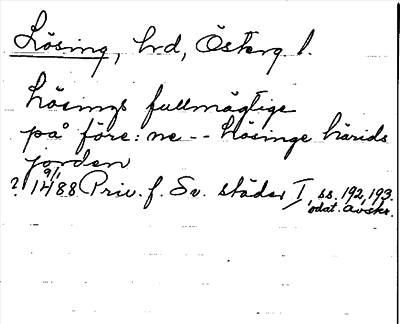 Lösing, hrd, Österg. l.
Lösings fullmägtige
på före: ne -- Lösinge härids
jorden
? 9/1 1488 Priv. f. Sv. städer I ss. 192, 193.
odat. avskr.